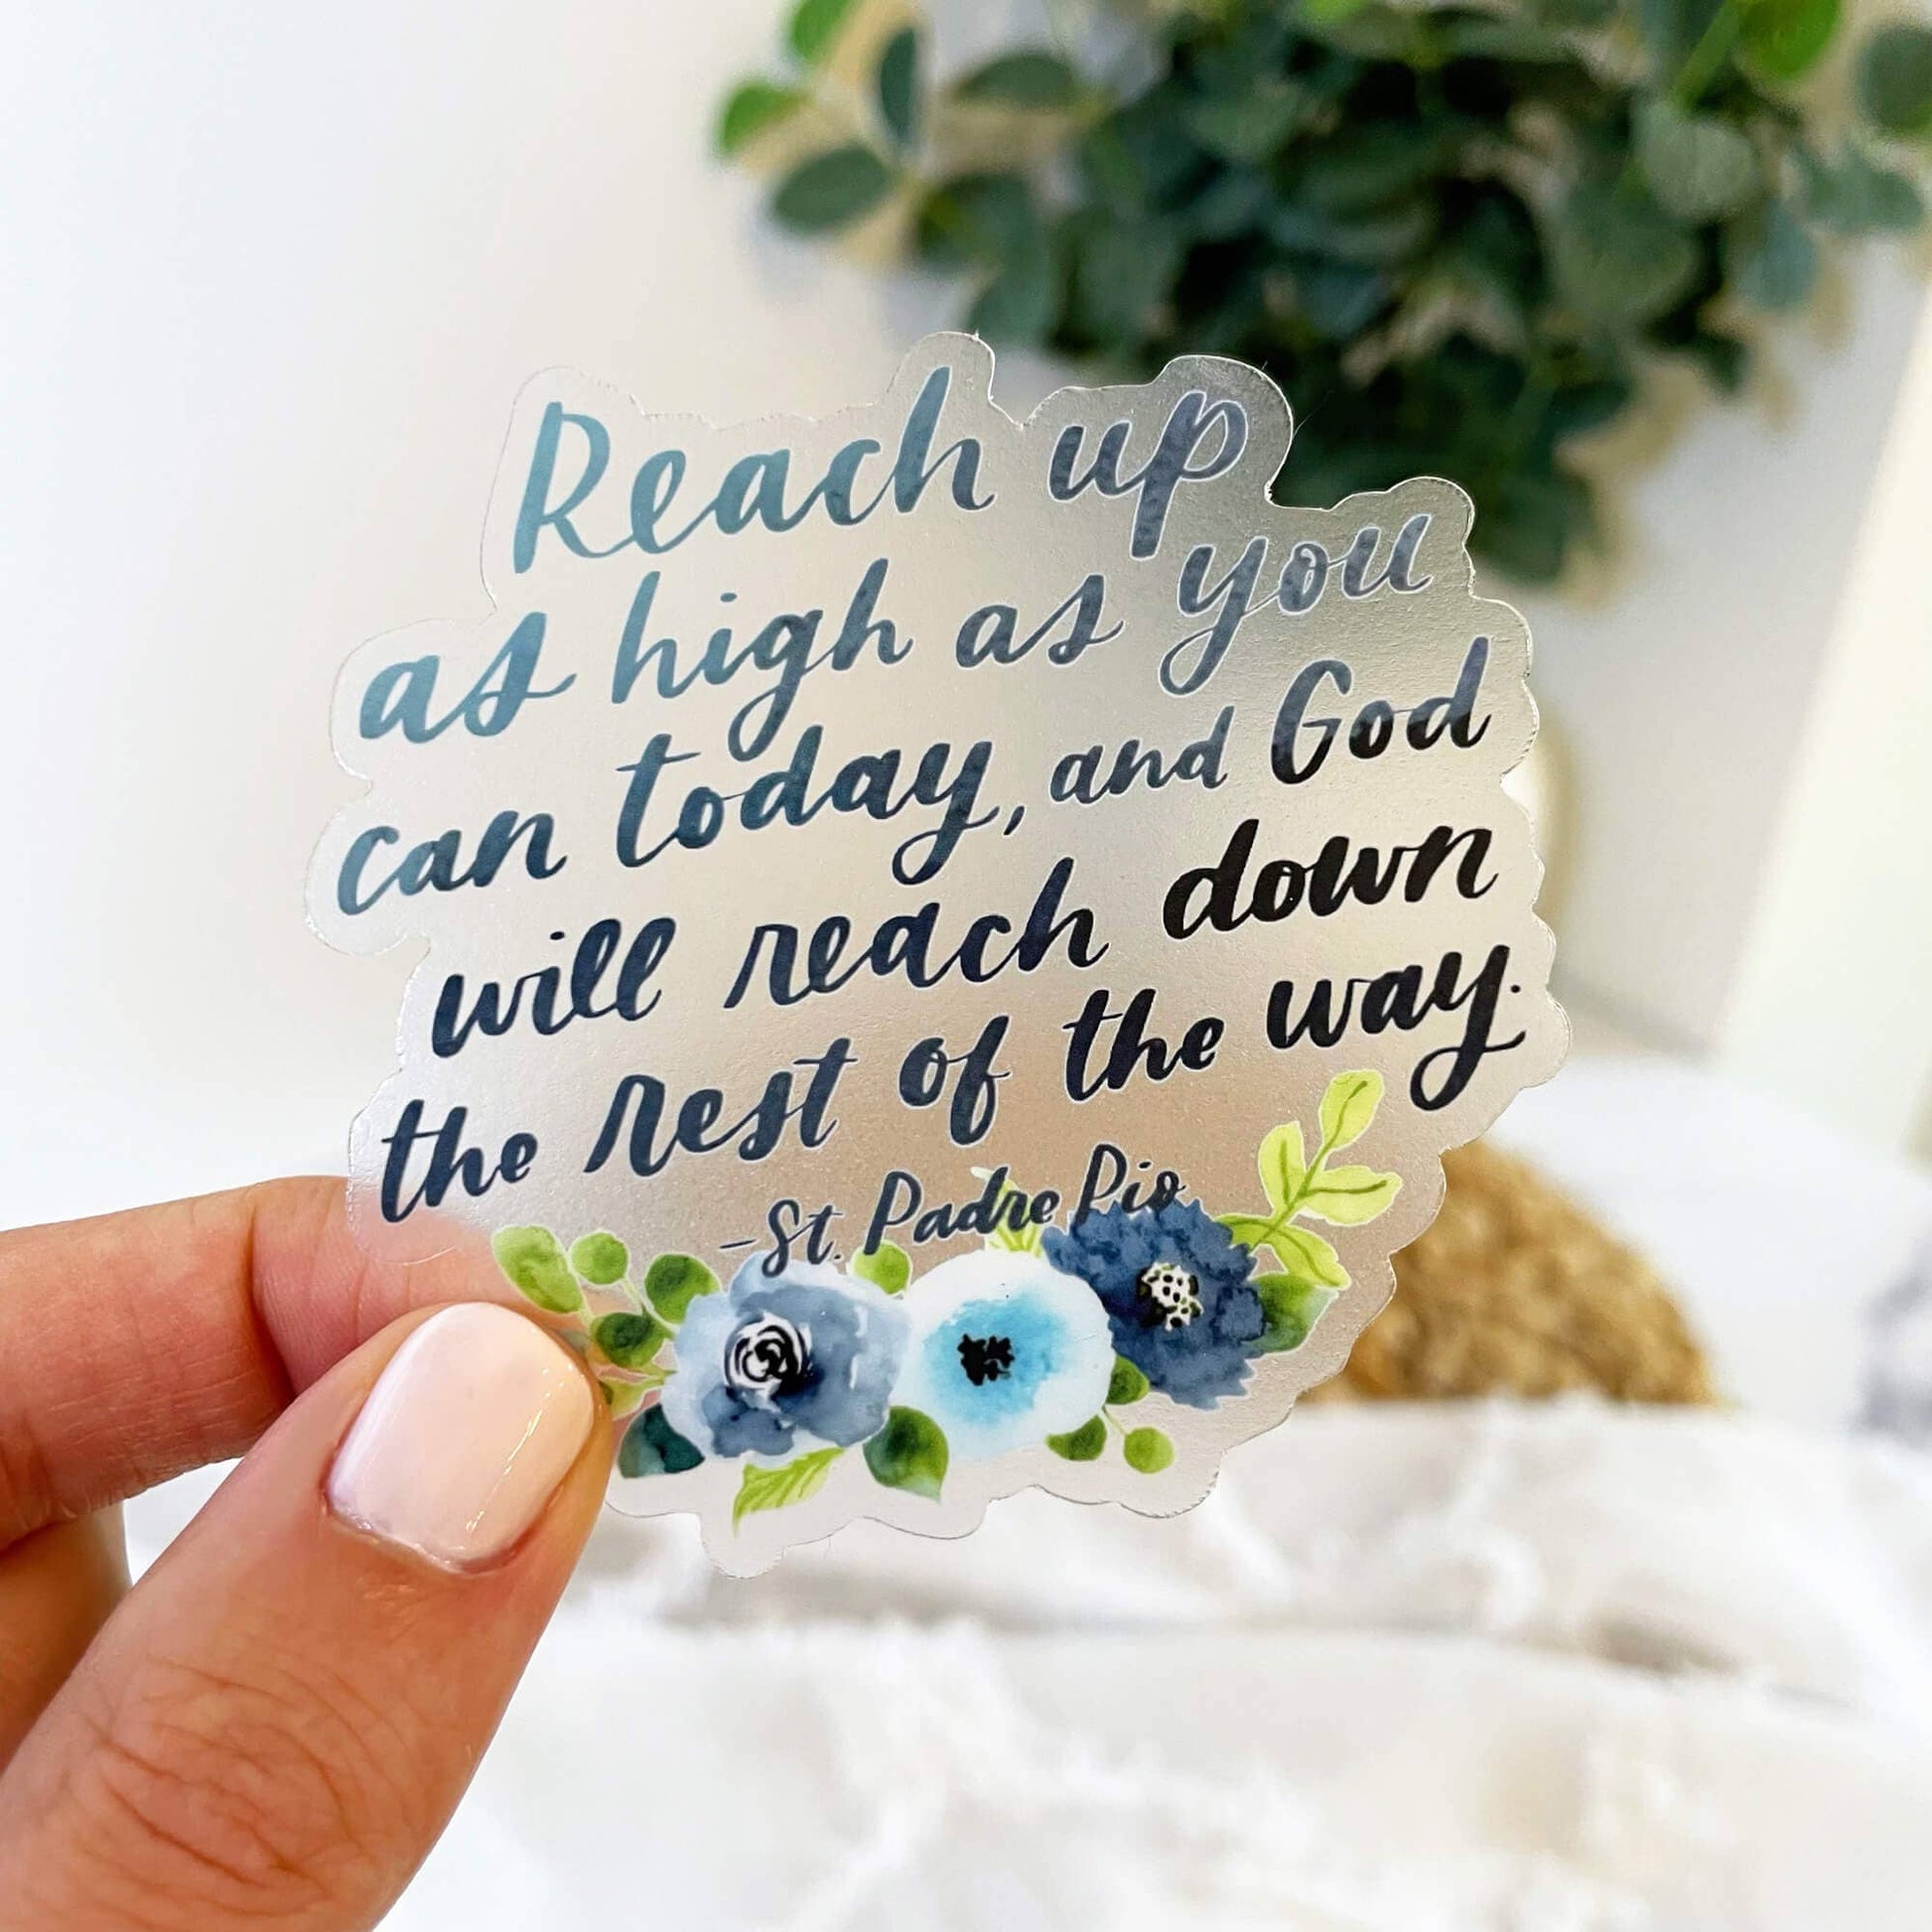 Reach up
as high as you
can today, and God
will reach down
the rest of the way.
-St. Padre Pio